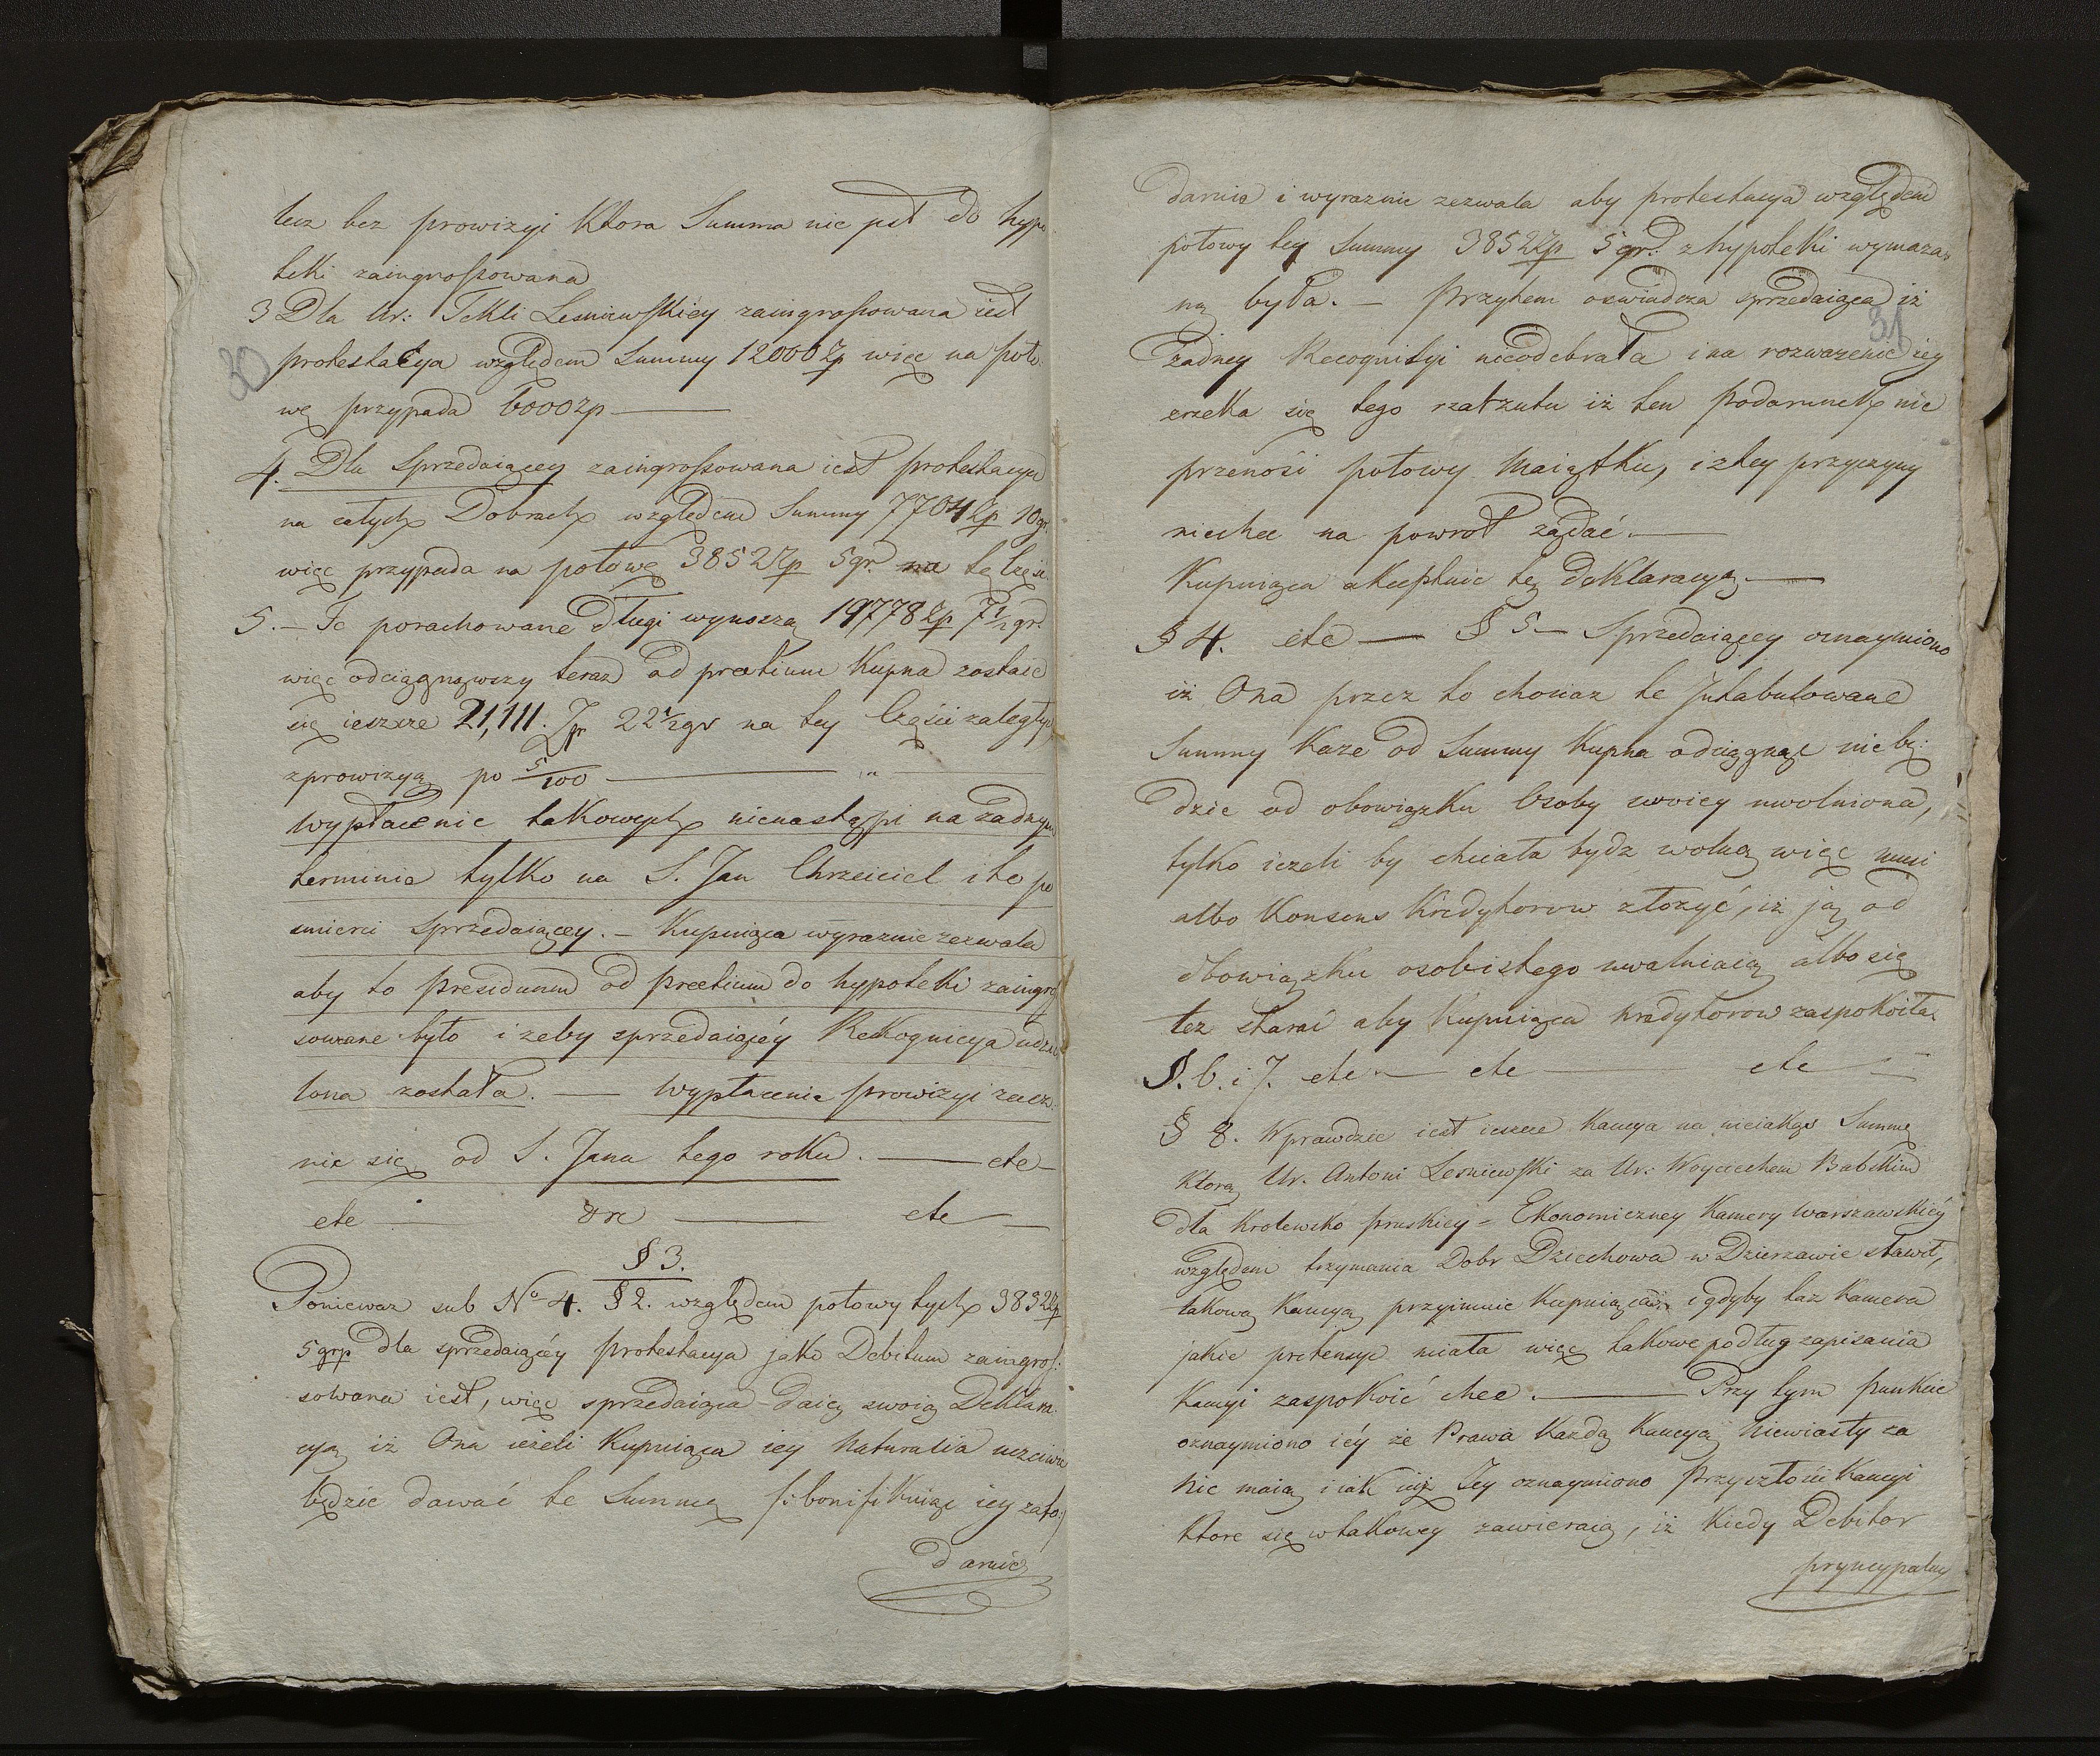 lecz bez prowizyi ktora Summa nie jest do hypo
teki zaingrossowana
3 Dla Ur: Tekli Lesniewskiey zaingrossowana iest
30
protestacya względem Summy 12000 Zp więc na poło:
wę przypada 6000 zp ——
4. Dla Sprzedaiącey zaingrossowana iest protestacya
na całych Dobrach względem Summy 7704 Zp 10 gr.
więc przypada na połowę 3852 Zp 5 gr. na tę część.
5. — Te porachowane długi wynoszą 19778 Zp 7½ gr.
więc odciągnąwszy teraz od pretium Kupna zostaie
się ieszcze 21,111. Zp 22½ gr na tey Części zaległych
zprowizyą po 5/100 —— „ ——
Wypłacenie takowych nienastąpi na żadnym
terminie tylko na S. Jan Chrzciciel i to po
smierci sprzedaiącey. — Kupuiąca wyraznie zezwala
aby to presiduum od pretium do hypoteki zaingro
sowane było i zeby sprzedaiącéy Rekognicya udzie
lona została. —— Wypłacenie prowizyi zacz:
nie się od S. Jana tego roku. —— etc —
etc —— etc —— etc —
§ 3.
Poniewaz sub No 4. § 2. względem połowy tych 3832 Zp
5 grp dla sprzedaiącéy protestacya jako Debitum zaingros:
sowana iest, więc sprzedaiąca daię swoią Deklara:
cyą iż Ona ieżeli Kupuiąca iey Naturalia uczciwie
będzie dawać te Summę /: bonifikuiąc iey zato :/
darnie
darnia i wyraznie zezwala aby protestacya względem
połowy tey Summy 3852 Zp 5 gr. z hypoteki wymaza:
ną była. — Przytem oswiadcza sprzedaiąca iż
31
żadney Recognisyi nieodebrała i na rozwazenie iey
zrzeka się tego zarzutu iż ten Podarunek nie
przenosi połowy Maiątku, i ztey przyczyny
niechce na powrot żądać. ——
Kupuiąca akceptuie tę Deklaracyą. ——
§ 4. etc —— § 5 — Sprzedaiącey oznaymiono
iż Ona przez to chociaz te Intabulowane
Summy Kaze od Summy Kupna odciągnąc nie bę:
dzie od obowiązku Osoby swoiey uwolniona,
tylko ieżeli by chciała bydz wolną więc musi
albo Konsens Kredytorow złożyć, iż ją od
obowiązku osobistego uwalniaią albo się
tez starać aby Kupuiąca kredytorow zaspokoiła.
§. 6. i 7. etc — etc —— etc —
§ 8. Wprawdzie iest ieszcze Kaucya na nieiakąs Summę
Ktorą Ur. Antoni Lesniewski za Ur: Woyciechem Babskim
dla Krolewsko pruskiey = Ekonomiczney Kamery Warszawskiéy
względem trzymania Dobr Dziechowa w Dzierzawie stawił,
takową Kaucyą przyimuie Kupuiąca i gdyby taz Kamera
jakie pretensye miała więc takowe podług zapisania
Kaucyi zaspokoić chce. —— Przy tym punkcie
oznaymiono iéy że Prawa Każdą Kaucyą Niewiasty za
nic maią i iak iey oznaymiono Przyszłosci Kaucyi
Ktore się w takowey zawieraią, iż Kiedy Debitor
pryncypalny